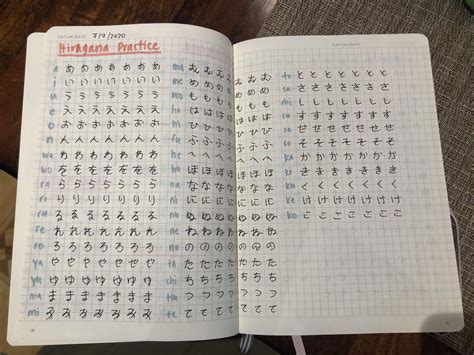 DATUM/DATE 7/7/2020
Hiragana Practice
a あ あ あ あ あ あ
i い い い い い い
u う う う う う う
e え え え え え え
o お お お お お お
n ん ん ん ん ん ん
wa わ わ わ わ わ わ
wo を を を を を を
ra ら ら ら ら ら ら
ri り り り り り り
ru る る る る る る
re れ れ れ れ れ れ
ro ろ ろ ろ ろ ろ ろ
ya や や や や や や
yu ゆ ゆ ゆ ゆ ゆ ゆ
ma ま ま ま ま ま ま
mi み み み み み み
mu む む む む む む
me め め め め め め
mo も も も も も も
ha は は は は は は
hi ひ ひ ひ ひ ひ ひ
fu ふ ふ ふ ふ ふ ふ
he へ へ へ へ へ へ
ho ほ ほ ほ ほ ほ ほ
na な な な な な な
ni に に に に に に
nu ぬ ぬ ぬ ぬ ぬ ぬ
ne ね ね ね ね ね ね
no の の の の の の
ta た た た た た た
chi ち ち ち ち ち ち
tsu つ つ つ つ つ つ
te て て て て て て
DATUM/DATE
to と と と と と と
sa さ さ さ さ さ さ
shi し し し し し し
su す す す す す す
se せ せ せ せ せ せ
so そ そ そ そ そ そ
ka か か か か か か
ki き き き き き き
ku く く く く く く
ke け け け け け け
ko こ こ こ こ こ こ